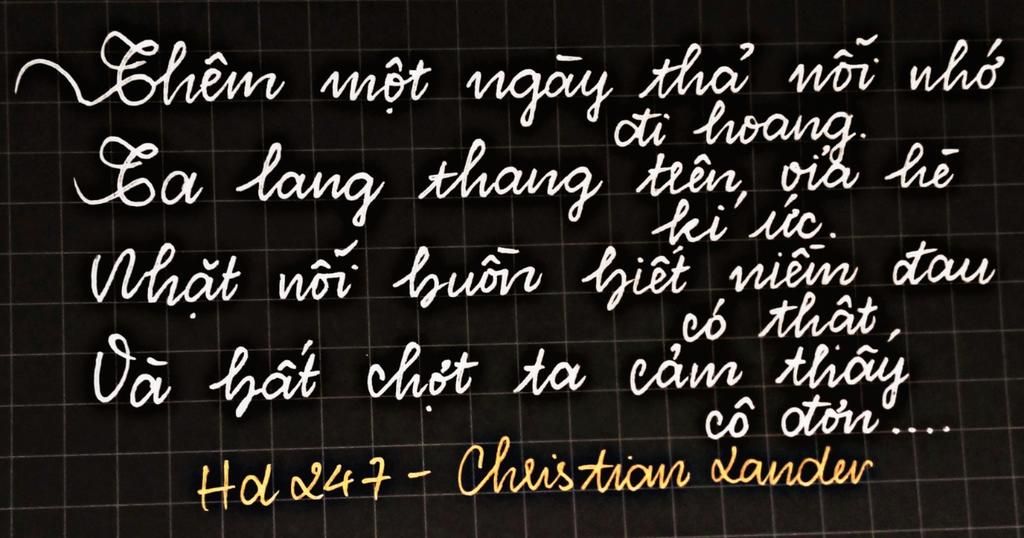 Thêm một ngày thả nỗi nhớ
đi hoang.
Ta lang thang trên, vỉa hè
kí ức.
Nhặt nỗi buồn biết niềm đau
có thât,
Và bất chợt ta cảm thấy
cô đơn....
Hd 247 - Christian Lander